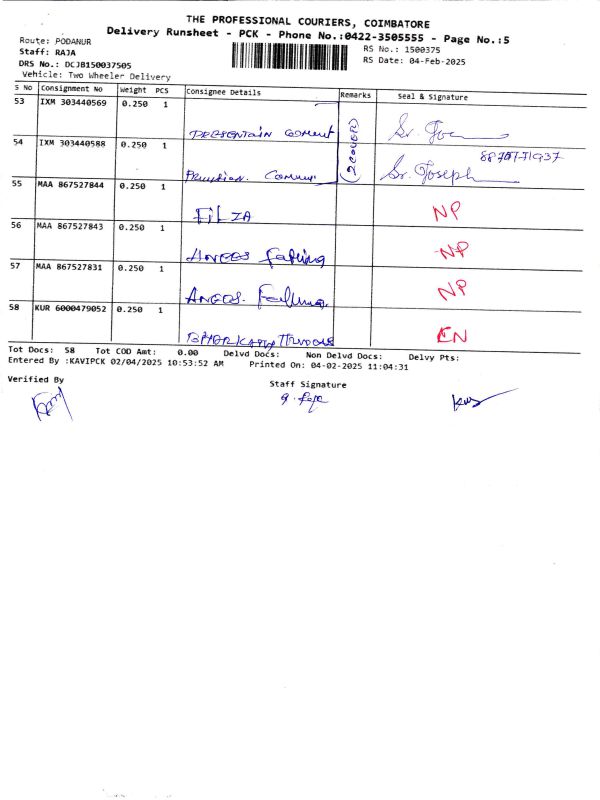 THE PROFESSIONAL COURIERS, COIMBATORE
Delivery Runsheet - PCK - Phone No.:0422-3505555 - Page No.:5
Route: PODANUR
RS No.: 1500375
Staff: RAJA
RS Date: 04-Feb-2025
DRS No.: DCJB150037505
Vehicle: Two Wheeler Delivery
S No Consignment No Weight PCS Consignee Details Remarks Seal & Signature
53 IXM 303440569 0.250 1
(2 COVER)
Sr.
54 IXM 303440588 0.250 1
Sr. Joseph
55 MAA 867527844 0.250 1
FILZA NP
56 MAA 867527843 0.250 1
NP
57 MAA 867527831 0.250 1
NP
58 KUR 6000479052 0.250 1
Tot Docs: 58 Tot COD Amt: 0.00 Delvd Docs: Non Delvd Docs: Delvy Pts:
Entered By :KAVIPCK 02/04/2025 10:53:52 AM Printed On: 04-02-2025 11:04:31
Verified By
Staff Signature